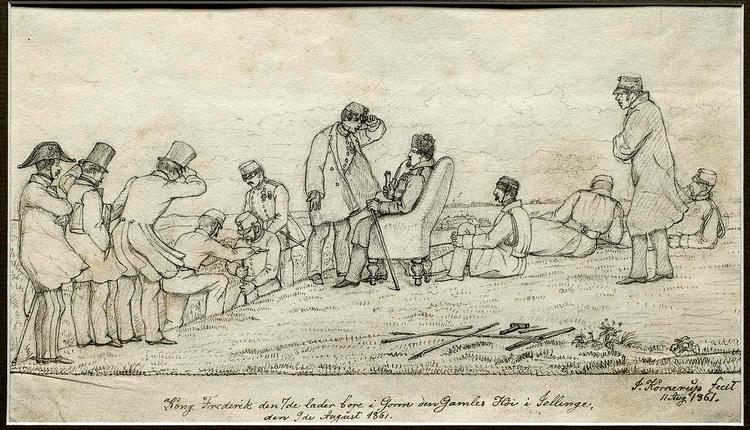 Kong Frederik den 7de lader bore i Gorm den Gamles Höi i Jellinge,
den 9de August 1861.
J. Kornerup fecit
11 Aug 1861.